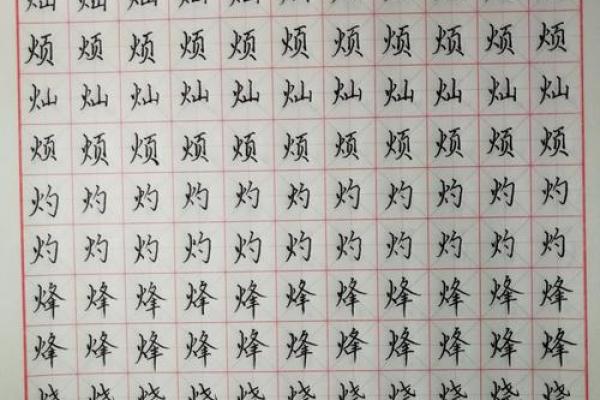 灿灿灿灿灿灿灿灿灿灿灿
烦烦烦烦烦烦烦烦烦烦烦
灿灿灿灿灿灿灿灿灿灿灿
烦烦烦烦烦烦烦烦烦烦烦
灼灼灼灼灼灼灼灼灼灼灼
灼灼灼灼灼灼灼灼灼灼灼
烽烽烽烽烽烽烽烽烽烽烽
烽烽烽烽烽烽烽烽烽烽烽
烧烧烧烧烧烧烧烧烧烧烧